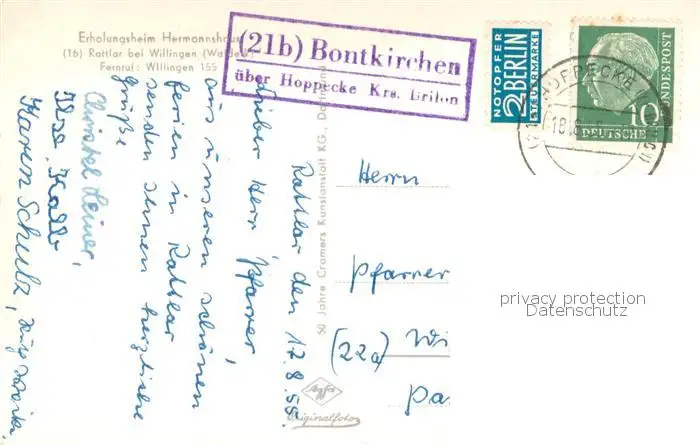 Erholungsheim Hermannshaus
(16) Rattlar bei Willingen (Waldeck)
Fernruf: Willingen 155
(21b) Bontkirchen
über Hoppecke Krs. Brilon
NOTOPFER
2 BERLIN
STEUERMARKE
DEUTSCHE
BUNDESPOST
10
HOPPECKE
18.8.
Rattlar den 17.8.55.
Lieber Herr Pfarrer,
aus unseren schönen
Ferien in Rattlar
senden Ihnen herzliche
Grüße
Christel Leiner,
Ilse Kalb
Karen Schulz,
50 Jahre Cromers Kunstanstalt KG.,
Agfa
Originalfoto
Herrn
Pfarrer
(22a) Wi
Pa
privacy protection
Datenschutz